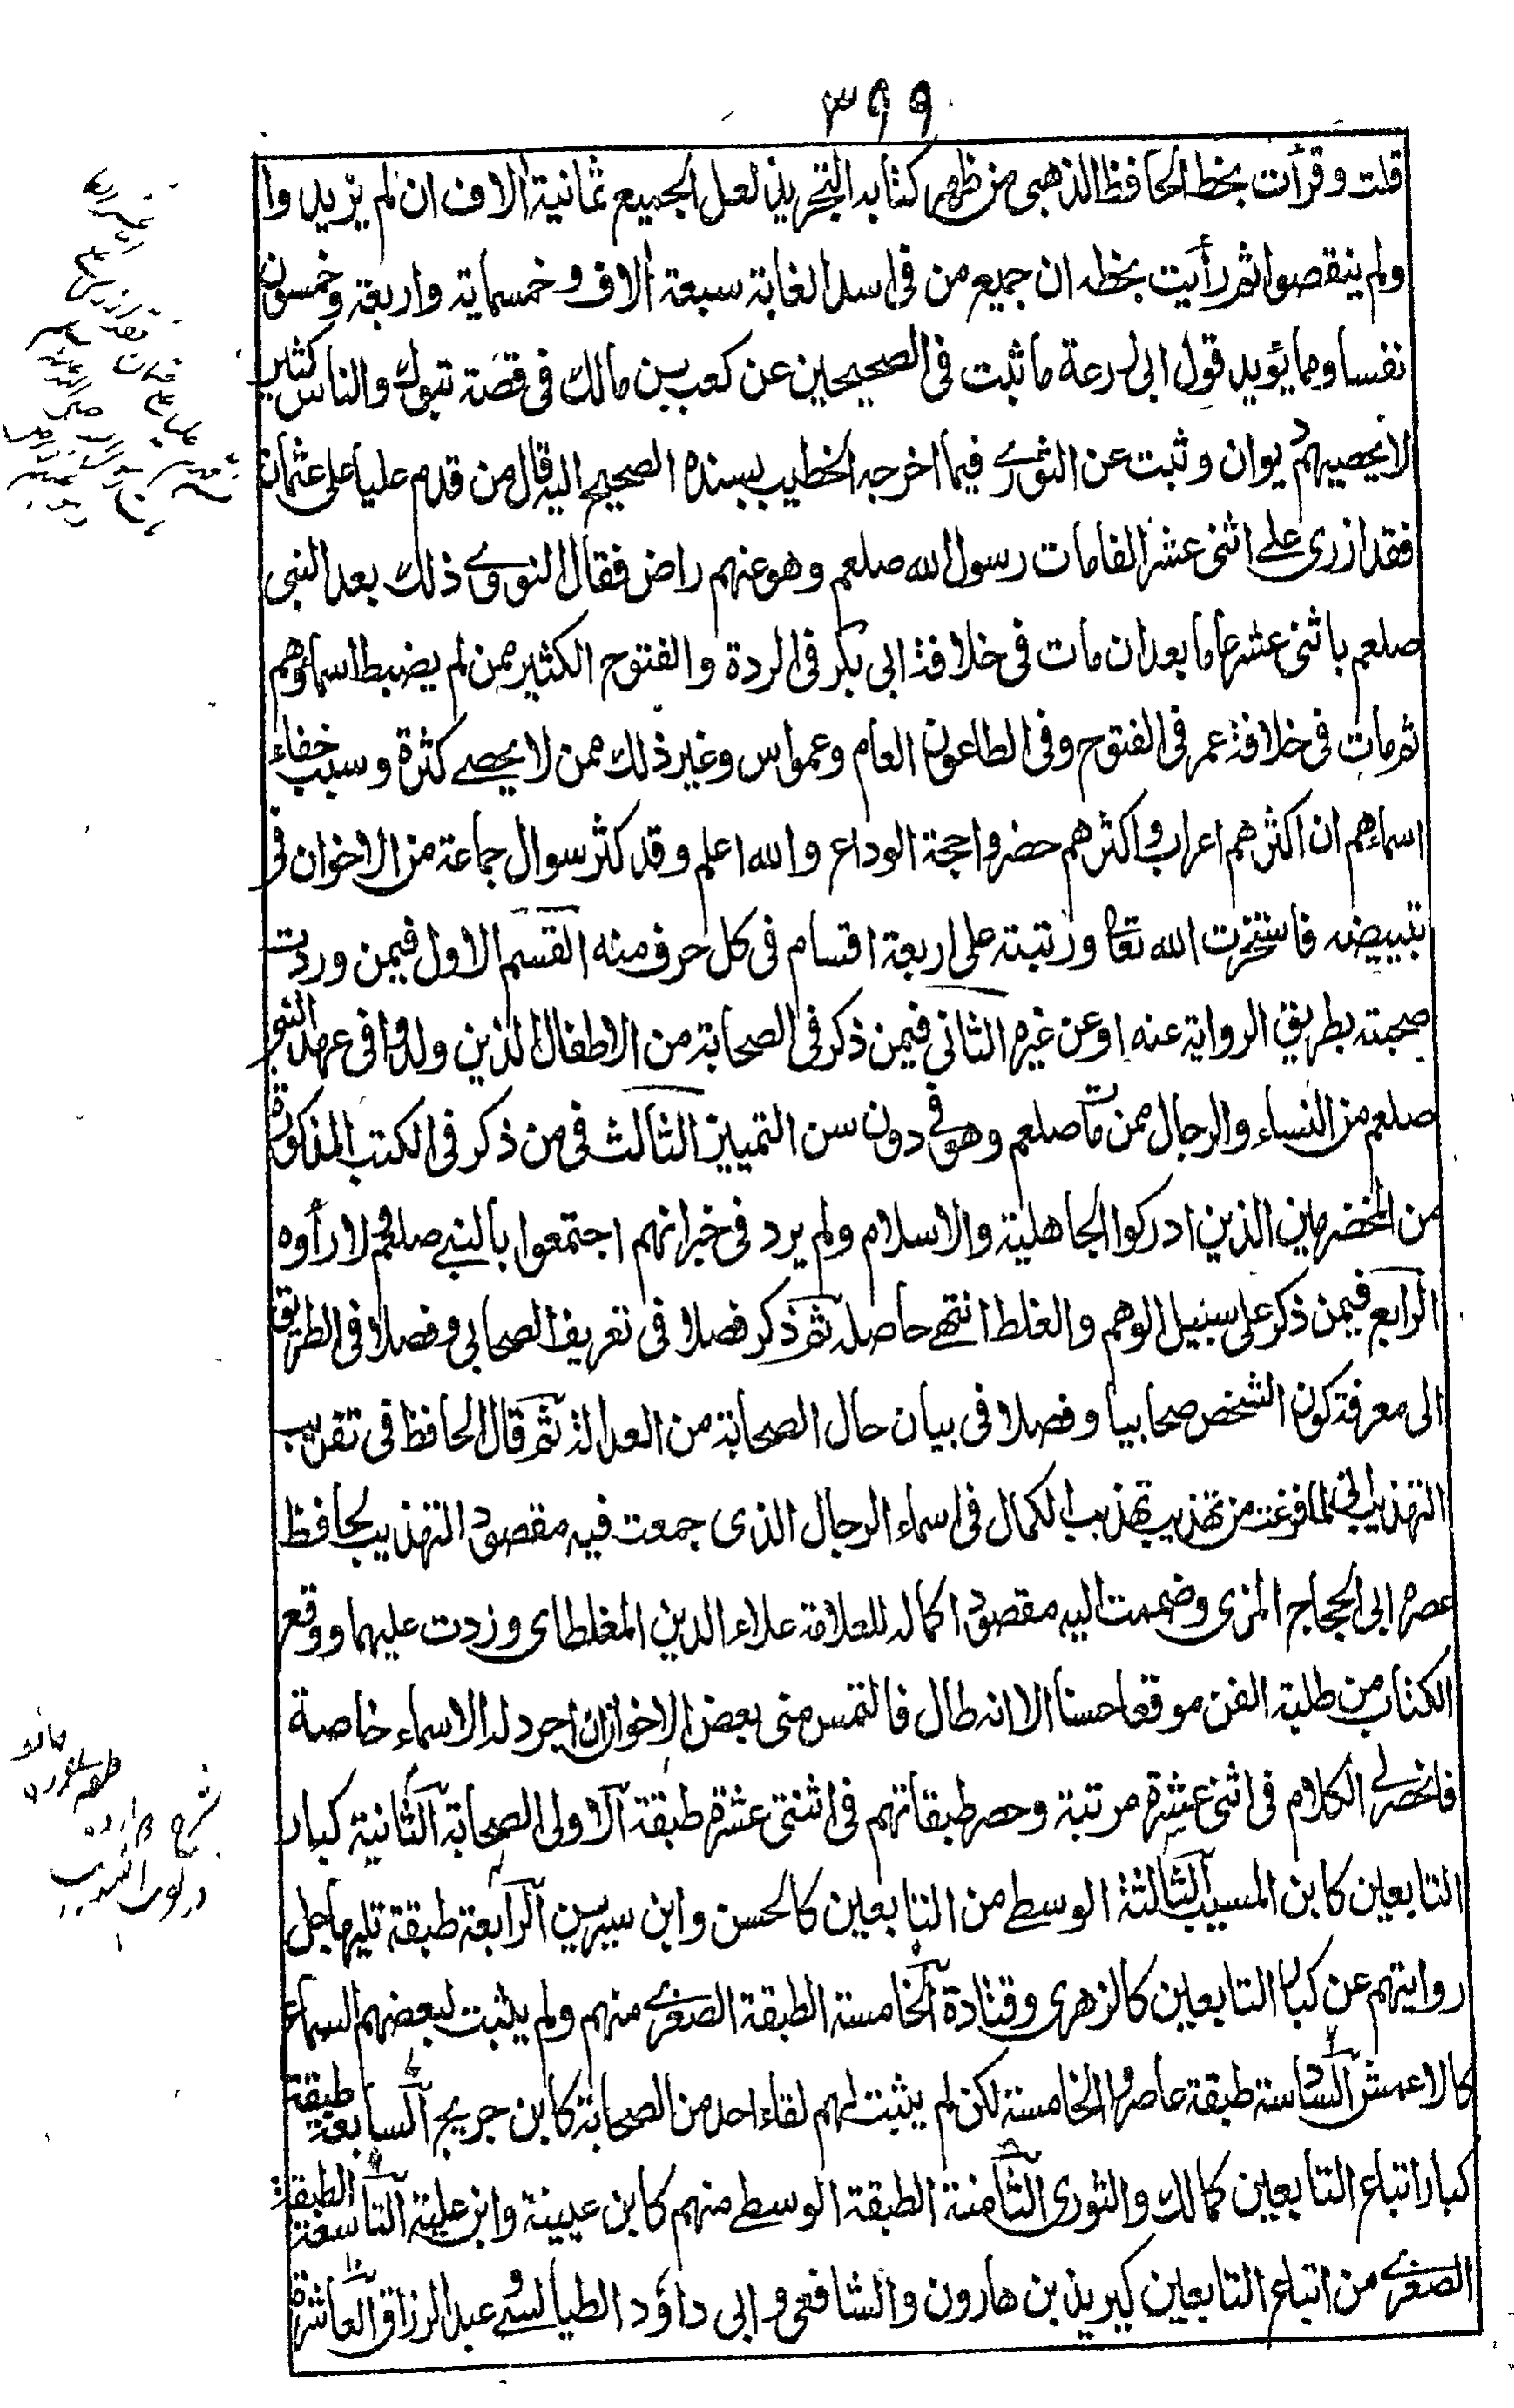 ٣٩٩
قلت وقرأت بخط الحافظ الذهبى من ظهر كتابه التجريد لعل الجميع ثمانية الاف ان لم يزيدوا
ولم ينقصوا ثم رأيت بخطه ان جميع من فى اسد الغابة سبعة الاف وخمسماية واربعة وخمسون
نفسا ومما يؤيد قول ابى زرعة ما ثبت فى الصحيحين عن كعب بن مالك فى قصة تبوك والناس كثير
لا يحصيهم ديوان وثبت عن الثورى فيما اخرجه الخطيب بسنده الصحيح اليه قال من قدم عليا على عثمان
فقد ازرى على اثنى عشر الفا مات رسول الله صلعم وهو عنهم راض فقال النووى ذلك بعد النبى
صلعم باثنى عشر عاما بعد ان مات فى خلافة ابى بكر فى الردة والفتوح الكثير ممن لم يضبط اسماؤهم
ثم مات فى خلافة عمر فى الفتوح وفى الطاعون العام وعمواس وغير ذلك ممن لا يحصى كثرة وسبب خفاء
اسماءهم ان اكثرهم اعراب واكثرهم حضروا حجة الوداع والله اعلم وقد كثر سوال جماعة من الاخوان فى
تبييضه فاستخرت الله تعا ورتبته على اربعة اقسام فى كل حرف منه القسم الاول فيمن وردت
صحبته بطريق الرواية عنه او عن غيره الثانى فيمن ذكر فى الصحابة من الاطفال الذين ولدوا فى عهد النبى
صلعم من النساء والرجال ممن مات صلعم وهو فى دون سن التمييز الثالث فى من ذكر فى الكتب المذكورة
من المخضرمين الذين ادركوا الجاهلية والاسلام ولم يرد فى خبر انهم اجتمعوا بالنبى صلعم ولا رأوه
الرابع فيمن ذكر على سبيل الوهم والغلط انتهى حاصله ثم ذكر فصلا فى تعريف الصحابى وفصلا فى الطريق
الى معرفة كون الشخص صحابيا وفصلا فى بيان حال الصحابة من العدالة ثم قال الحافظ فى تقريب
التهذيب انى لما فرغت من تهذيب تهذيب الكمال فى اسماء الرجال الذى جمعت فيه مقصود التهذيب لحافظ
عصره ابى الحجاج المزى وضممت اليه مقصود اكماله للعلامة علاء الدين المغلطاى وزدت عليهما ووقع
الكتاب من طلبة الفن موقعا حسنا الا انه طال فالتمس منى بعض الاخوان ان اجرد له الاسماء خاصة
فانحصر لى الكلام فى اثنى عشرة مرتبة وحصر طبقاتهم فى اثنتى عشرة طبقة الاولى الصحابة الثانية كبار
التابعين كابن المسيب الثالثة الوسطى من التابعين كالحسن وابن سيرين الرابعة طبقة تليها جل
روايتهم عن كبار التابعين كالزهرى وقتادة الخامسة الطبقة الصغرى منهم ولم يثبت لبعضهم السماع
كالاعمش السادسة طبقة عاصروا الخامسة لكن لم يثبت لهم لقاء احد من الصحابة كابن جريج السابعة طبقة
كبار اتباع التابعين كمالك والثورى الثامنة الطبقة الوسطى منهم كابن عيينة وابن علية التاسعة الطبقة
الصغرى من اتباع التابعين كيزيد بن هارون والشافعى وابى داؤد الطيالسى وعبد الرزاق العاشرة